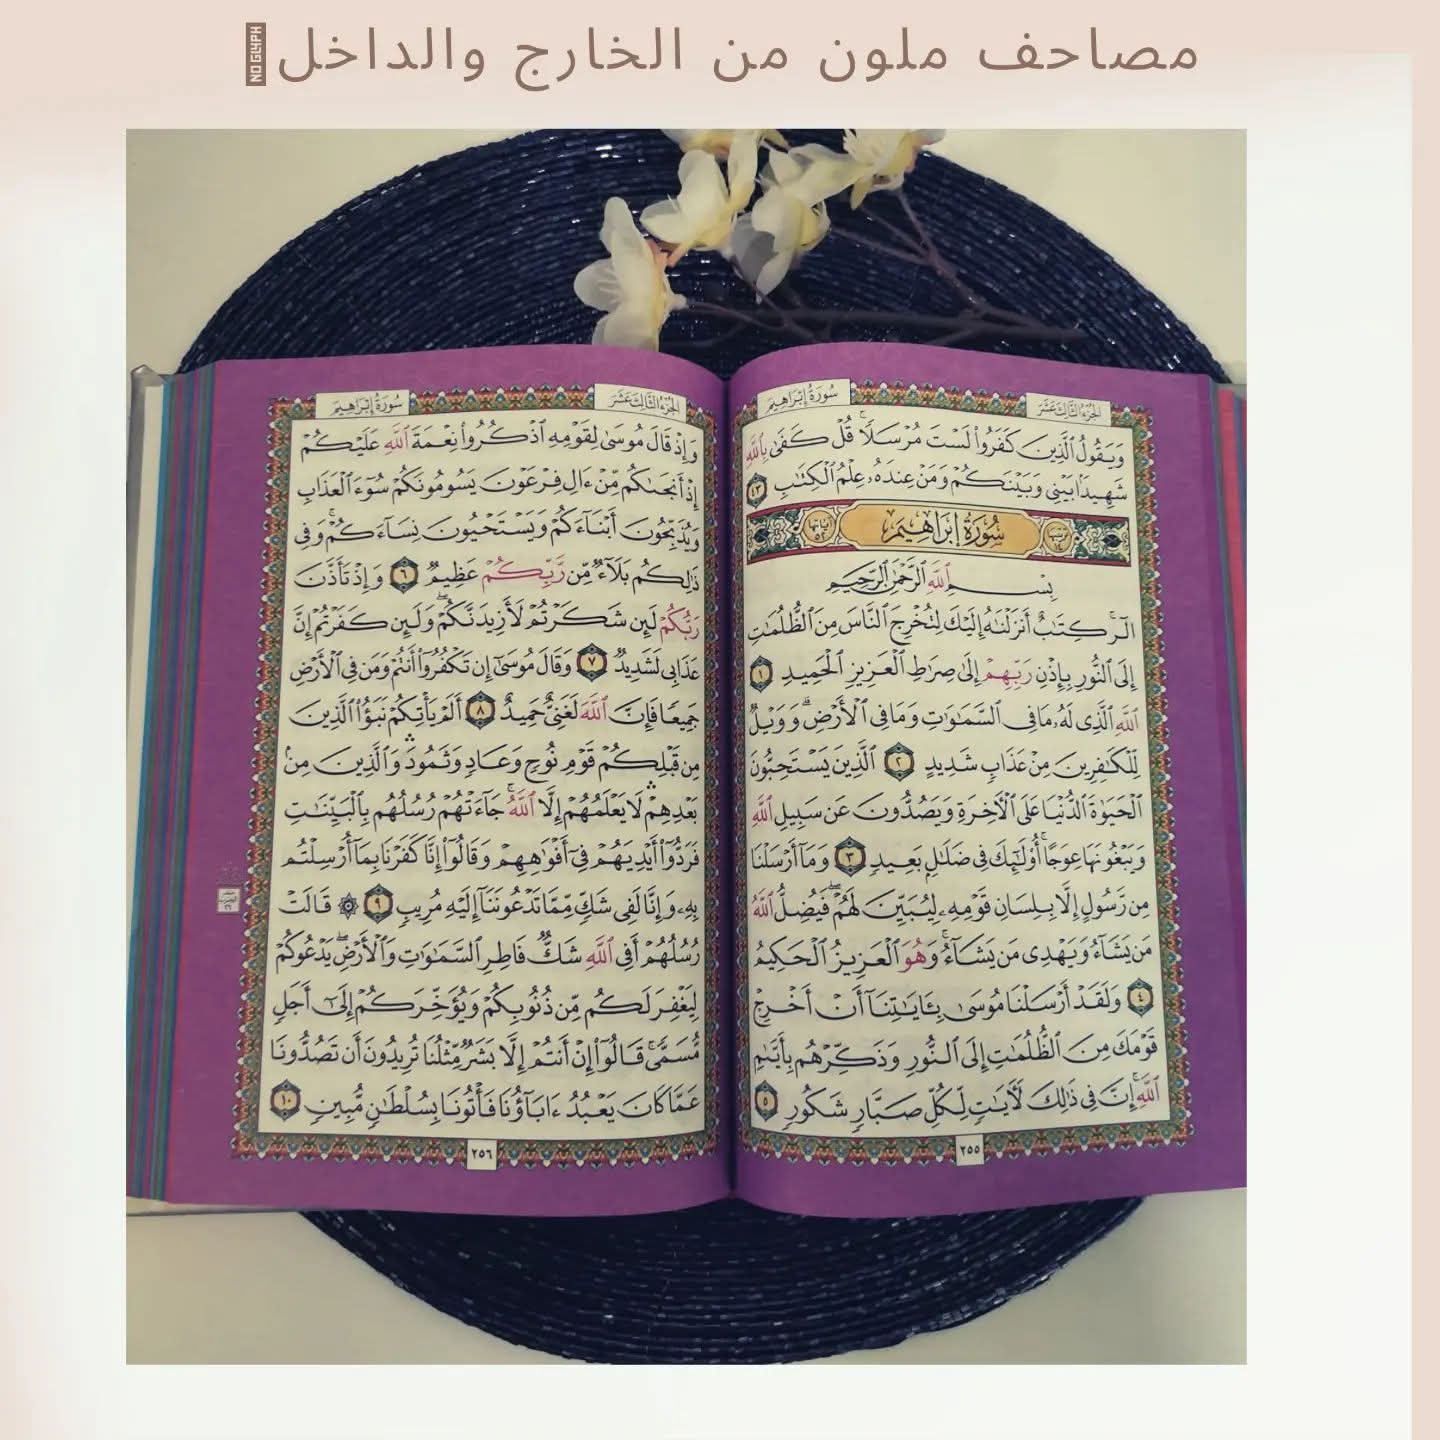 مصاحف ملون من الخارج والداخل
سُورَةُ إِبْرَاهِيمَ
الجُزْءُ الثَّالِثَ عَشَرَ
وَيَقُولُ ٱلَّذِينَ كَفَرُواْ لَسْتَ مُرْسَلًاۚ قُلْ كَفَىٰ بِٱللَّهِ
شَهِيدَۢا بَيْنِي وَبَيْنَكُمْ وَمَنْ عِندَهُۥ عِلْمُ ٱلْكِتَٰبِ ٤٣
مكية ترتيبها ١٤ سُورَةُ إِبْرَاهِيمَ آياتها ٥٢
بِسْمِ ٱللَّهِ ٱلرَّحْمَٰنِ ٱلرَّحِيمِ
الٓرۚ كِتَٰبٌ أَنزَلْنَٰهُ إِلَيْكَ لِتُخْرِجَ ٱلنَّاسَ مِنَ ٱلظُّلُمَٰتِ
إِلَى ٱلنُّورِ بِإِذْنِ رَبِّهِمْ إِلَىٰ صِرَٰطِ ٱلْعَزِيزِ ٱلْحَمِيدِ ١
ٱللَّهِ ٱلَّذِي لَهُۥ مَا فِي ٱلسَّمَٰوَٰتِ وَمَا فِي ٱلْأَرْضِۗ وَوَيْلٌ
لِّلْكَٰفِرِينَ مِنْ عَذَابٍ شَدِيدٍ ٢ ٱلَّذِينَ يَسْتَحِبُّونَ
ٱلْحَيَوٰةَ ٱلدُّنْيَا عَلَى ٱلْأٓخِرَةِ وَيَصُدُّونَ عَن سَبِيلِ ٱللَّهِ
وَيَبْغُونَهَا عِوَجًاۚ أُوْلَٰٓئِكَ فِي ضَلَٰلٍۭ بَعِيدٍ ٣ وَمَآ أَرْسَلْنَا
مِن رَّسُولٍ إِلَّا بِلِسَانِ قَوْمِهِۦ لِيُبَيِّنَ لَهُمْۖ فَيُضِلُّ ٱللَّهُ
مَن يَشَآءُ وَيَهْدِي مَن يَشَآءُۚ وَهُوَ ٱلْعَزِيزُ ٱلْحَكِيمُ
٤ وَلَقَدْ أَرْسَلْنَا مُوسَىٰ بِـَٔايَٰتِنَآ أَنْ أَخْرِجْ
قَوْمَكَ مِنَ ٱلظُّلُمَٰتِ إِلَى ٱلنُّورِ وَذَكِّرْهُم بِأَيَّىٰمِ
ٱللَّهِۚ إِنَّ فِي ذَٰلِكَ لَأٓيَٰتٍ لِّكُلِّ صَبَّارٍ شَكُورٍ ٥
٢٥٥
سُورَةُ إِبْرَاهِيمَ
الجُزْءُ الثَّالِثَ عَشَرَ
وَإِذْ قَالَ مُوسَىٰ لِقَوْمِهِ ٱذْكُرُواْ نِعْمَةَ ٱللَّهِ عَلَيْكُمْ
إِذْ أَنجَىٰكُم مِّنْ ءَالِ فِرْعَوْنَ يَسُومُونَكُمْ سُوٓءَ ٱلْعَذَابِ
وَيُذَبِّحُونَ أَبْنَآءَكُمْ وَيَسْتَحْيُونَ نِسَآءَكُمْۚ وَفِي
ذَٰلِكُم بَلَآءٌ مِّن رَّبِّكُمْ عَظِيمٌ ٦ وَإِذْ تَأَذَّنَ
رَبُّكُمْ لَئِن شَكَرْتُمْ لَأَزِيدَنَّكُمْۖ وَلَئِن كَفَرْتُمْ إِنَّ
عَذَابِي لَشَدِيدٌ ٧ وَقَالَ مُوسَىٰٓ إِن تَكْفُرُوٓاْ أَنتُمْ وَمَن فِي ٱلْأَرْضِ
جَمِيعًا فَإِنَّ ٱللَّهَ لَغَنِيٌّ حَمِيدٌ ٨ أَلَمْ يَأْتِكُمْ نَبَؤُاْ ٱلَّذِينَ
مِن قَبْلِكُمْ قَوْمِ نُوحٍ وَعَادٍ وَثَمُودَۛ وَٱلَّذِينَ مِنۢ
بَعْدِهِمْۛ لَا يَعْلَمُهُمْ إِلَّا ٱللَّهُۚ جَآءَتْهُمْ رُسُلُهُم بِٱلْبَيِّنَٰتِ
فَرَدُّوٓاْ أَيْدِيَهُمْ فِيٓ أَفْوَٰهِهِمْ وَقَالُوٓاْ إِنَّا كَفَرْنَا بِمَآ أُرْسِلْتُم
بِهِۦ وَإِنَّا لَفِي شَكٍّ مِّمَّا تَدْعُونَنَآ إِلَيْهِ مُرِيبٍ ٩ ۞ قَالَتْ
رُسُلُهُمْ أَفِي ٱللَّهِ شَكٌّ فَاطِرِ ٱلسَّمَٰوَٰتِ وَٱلْأَرْضِۖ يَدْعُوكُمْ
لِيَغْفِرَ لَكُم مِّن ذُنُوبِكُمْ وَيُؤَخِّرَكُمْ إِلَىٰٓ أَجَلٍ
مُّسَمًّىۚ قَالُوٓاْ إِنْ أَنتُمْ إِلَّا بَشَرٌ مِّثْلُنَا تُرِيدُونَ أَن تَصُدُّونَا
عَمَّا كَانَ يَعْبُدُ ءَابَآؤُنَا فَأْتُونَا بِسُلْطَٰنٍ مُّبِينٍ ١٠
٢٥٦